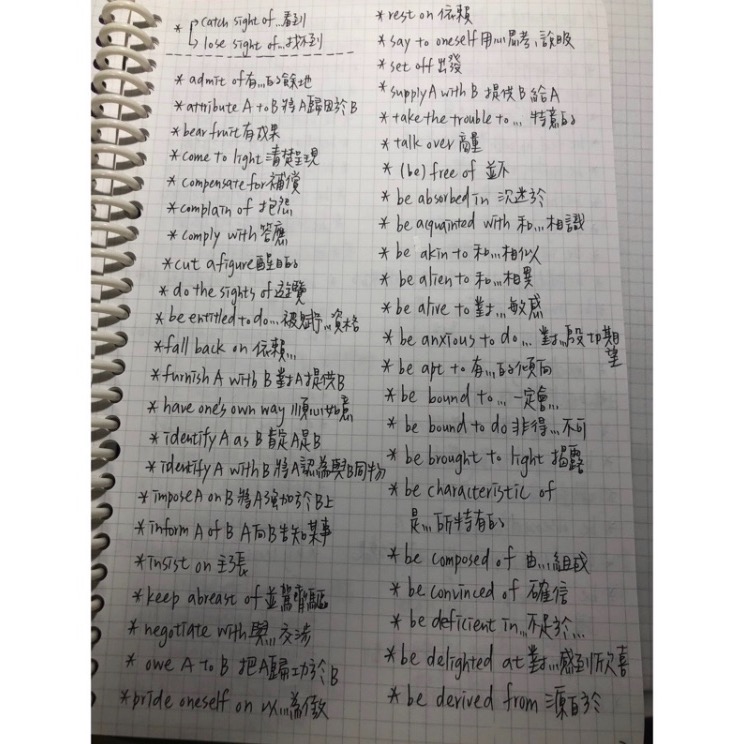 * catch sight of...看到
lose sight of...找不到
* admit of 有...的餘地
* attribute A to B 將A歸因於B
* bear fruit 有成果
* come to light 清楚呈現
* compensate for 補償
* complain of 抱怨
* comply with 答應
* cut a figure 醒目的
* do the sights of 遊覽
* be entitled to do... 被賦予...資格
* fall back on 依賴...
* furnish A with B 對A提供B
* have one's own way 順心如意
* identify A as B 肯定A是B
* identify A with B 將A認為與B同物
* impose A on B 將A強加於B上
* inform A of B A向B告知某事
* insist on 主張
* keep abreast of 並駕齊驅
* negotiate with 與...交涉
* owe A to B 把A歸功於B
* pride oneself on 以...為傲
* rest on 依賴
* say to oneself 用心思考, 說服
* set off 出發
* supply A with B 提供B給A
* take the trouble to... 特意的
* talk over 商量
* (be) free of 並不
* be absorbed in 沉迷於
* be acquainted with 和...相識
* be akin to 和...相似
* be alien to 和...相異
* be alive to 對...敏感
* be anxious to do... 對...殷切期望
* be apt to 有...的傾向
* be bound to... 一定會...
* be bound to do 非得...不可
* be brought to light 揭露
* be characteristic of
是...所特有的
* be composed of 由...組成
* be convinced of 確信
* be deficient in...不足於...
* be delighted at 對...感到欣喜
* be derived from 源自於